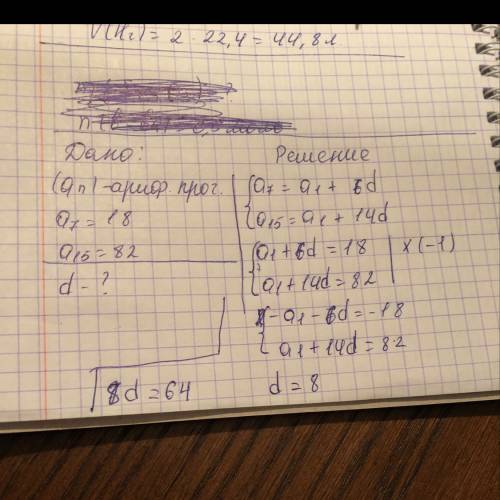 V(H₂) = 2 · 22,4 = 44,8 л
Дано:
(an) - ариф. прог.
a₇ = 18
a₁₅ = 82
d - ?
Решение
a₇ = a₁ + 6d
a₁₅ = a₁ + 14d
a₁ + 6d = 18 | × (-1)
a₁ + 14d = 82
- a₁ - 6d = -18
a₁ + 14d = 82
8d = 64
d = 8